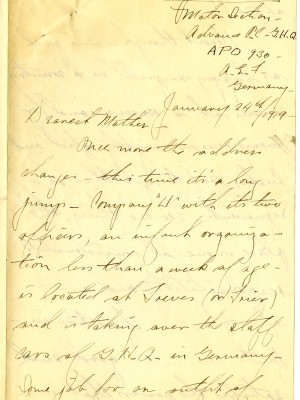 Motor Section -
Advance P.C. - G.H.Q.
APO 930 -
A.E.F.
Germany -
January 24th 1919 -
Dearest Mother -
Once more the address
changes - this time it's a long
jump - Company "H" with its two
officers, an infant organiza-
tion less than a week of age -
is located at Treves (or Trier)
and is taking over the staff
cars of G.H.Q. - in Germany -
Some job for an outfit of